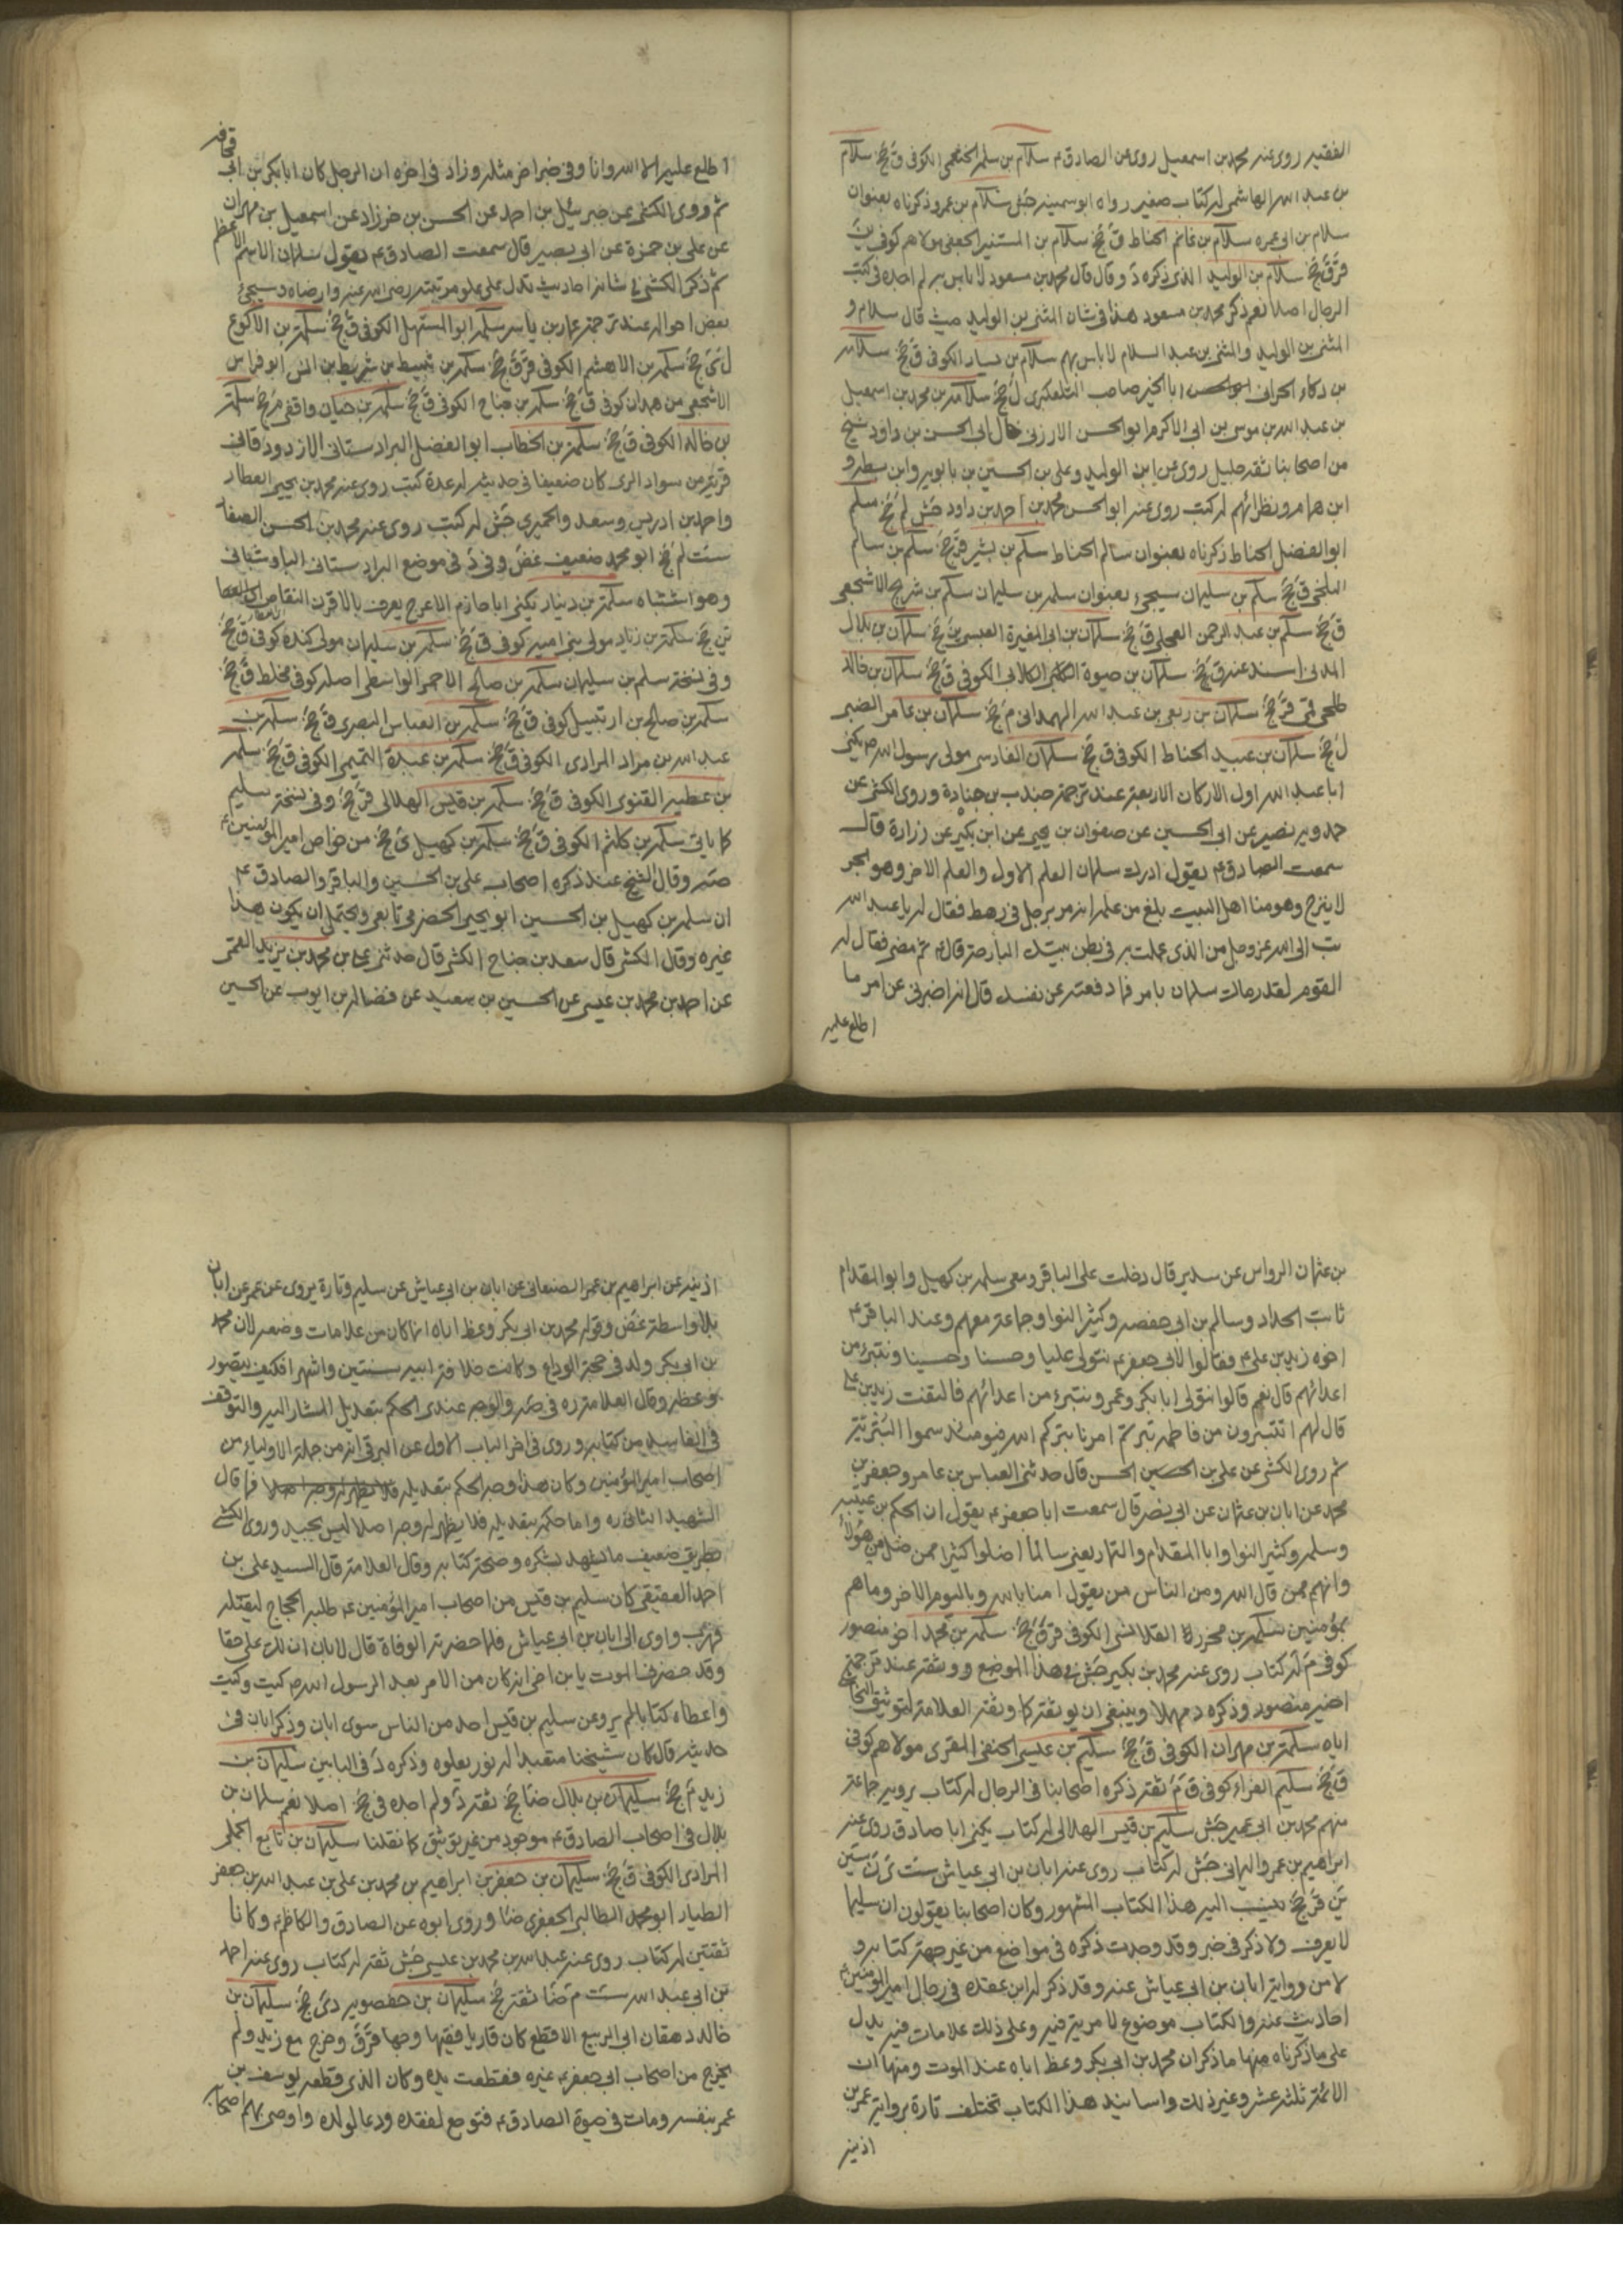 الفقيه روى عنه محمد بن اسمعيل روى عن الصادق ع سلام بن سلمة الخثعمي الكوفي ق جخ سلام
بن عبد الله الهاشمي له كتاب صغير رواه ابو سمينه جش سلام بن عمرو ذكرناه بعنوان
سلام بن ابي عمره سلام بن غانم الحناط ق جخ سلام بن المستنير الجعفي مولاهم كوفي ين
قر ق جخ سلام بن الوليد الذي ذكره د وقال قال محمد بن مسعود لا باس به لم اجده في كتب
الرجال اصلا نعم ذكر محمد بن مسعود هذا في شان المثنى بن الوليد حيث قال سلام و
المثنى بن الوليد والمثنى بن عبد السلام لا باس بهم سلام بن يسار الكوفي ق جخ سلامه
بن ذكاء الحراني ابا الخير صاحب التلعكبري ل جخ سلامه بن محمد بن اسمعيل
بن عبد الله بن موسى بن ابي الاكرم ابو الحسن الارزني خال ابي الحسن بن داود شيخ
من اصحابنا ثقه جليل روى عن ابن الوليد وعلي بن الحسين بن بابويه وابن بطه و
ابن همام ونظرائهم له كتب روى عنه ابو الحسن محمد بن احمد بن داود جش لم جخ سلم
ابو الفضل الحناط ذكرناه بعنوان سالم الحناط سلم بن بشير قر جخ سلم بن سالم
البلخي ق جخ سلم بن سليمان سيجيء بعنوان سلمه بن سليمان سلم بن شريح الاشجعي
ق جخ سلم بن عبد الرحمن العجلي ق جخ سلمان بن ابي المغيرة العبسي ين جخ سلمان بن بلال
المدني اسند عنه ق جخ سلمان بن حيوة الكلابي الكوفي ق جخ سلمان بن خالد
طلحي قمي قر جخ سلمان بن ربعي بن عبد الله الهمداني م جخ سلمان بن عامر الضبي
ل جخ سلمان بن عبيد الحناط الكوفي ق جخ سلمان الفارسي مولى رسول الله ص يكنى
ابا عبد الله اول الاركان الاربعة عند ترجمة جندب بن جنادة وروى الكشي عن
حمدويه بن نصير عن ابي الحسين عن صفوان بن يحيى عن ابن بكير عن زرارة قال
سمعت الصادق ع يقول ادرك سلمان العلم الاول والعلم الاخر وهو بحر
لا ينزح وهو منا اهل البيت بلغ من علمه انه مر برجل في رهط فقال له يا عبد الله
تب الى الله عز وجل من الذي عملت به في بطن بيتك البارحة قال ثم مضى فقال له
القوم لقد رماك سلمان بامر فما دفعته عن نفسك قال انه اخبرني عن امر ما
اطلع عليه
اطلع عليه الا الله وانا وفي خبر اخر مثله وزاد في اخره ان الرجل كان ابا بكر بن ابي
قحافه
ثم روى الكشي عن جبرئيل بن احمد عن الحسن بن خرزاد عن اسمعيل بن مهران
عن علي بن حمزة عن ابي بصير قال سمعت الصادق ع يقول سلمان الاسم الاعظم
ثم ذكر الكشي في شانه احاديث تدل على علو مرتبته رضي الله عنه وارضاه وسيجيء
بعض احواله عند ترجمة عمار بن ياسر سلمه ابو المستهل الكوفي ق جخ سلمة بن الاكوع
ل ي جخ سلمه بن الاهثم الكوفي قر ق جخ سلمه بن نبيط بن شريط بن انس ابو فراس
الاشجعي من همدان كوفي ق جخ سلمه بن جناح الكوفي ق جخ سلمه بن حيان واقفي م جخ سلمة
بن خالد الكوفي ق جخ سلمة بن الخطاب ابو الفضل البراوستاني الازدورقاني
قرية من سواد الري كان ضعيفا في حديثه له عدة كتب روى عنه محمد بن يحيى العطار
واحمد بن ادريس وسعد والحميري جش له كتب روى عنه محمد بن الحسن الصفار
ست لم جخ ابو محمد ضعيف غض وفي د في موضع البراوستاني الباوستاني
وهو اشتباه سلمة بن دينار يكنى ابا حازم الاعرج يعرف بالاقرن القاص
ين جخ سلمة بن زياد مولى بني اميه كوفي ق جخ سلمه بن سليمان مولى كنده كوفي ق جخ
وفي نسخة سلم بن سليمان سلمه بن صالح الاحمر الواسطي اصله كوفي مخلط ق جخ
سلمه بن صالح بن ارتبيل كوفي ق جخ سلمه بن العباس البصري ق جخ سلمه بن
عبد الله بن مراد المرادي الكوفي ق جخ سلمه بن عبدة التميمي الكوفي ق جخ سلمه
بن عطيه الغنوي الكوفي ق جخ سلمه بن قيس الهلالي قر جخ وفي نسخة سليم
كما ياتي سلمه بن كلثم الكوفي ق جخ سلمه بن كهيل ي جخ من خواص امير المؤمنين ع
صه وقال الشيخ عند ذكره اصحاب علي بن الحسين والباقر والصادق ع
ان سلمه بن كهيل بن الحسين ابو يحيى الحضرمي تابعي ويحتمل ان يكون هذا
غيره وقال الكشي قال سعد بن جناح الكشي قال حدثني علي بن محمد بن يزيد القمي
عن احمد بن محمد بن عيسى عن الحسين بن سعيد عن فضاله بن ايوب عن الحسين
بن عثمان الرواسي عن سدير قال دخلت على الباقر ومعي سلمه بن كهيل وابو المقدام
ثابت الحداد وسالم بن ابي حفصه وكثير النوا وجماعة معهم وعند الباقر ع
اخوه زيد بن علي ع فقالوا لابي جعفر ع نتولى عليا وحسنا وحسينا ونتبرء من
اعدائهم قال نعم قالوا نتولى ابا بكر وعمر ونتبرء من اعدائهم فالتفت زيد بن علي
قال لهم اتتبرؤن من فاطمه بترتم امرنا بتركم الله فيومئذ سموا البترية
ثم روى الكشي عن علي بن الحسن قال حدثني العباس بن عامر وجعفر بن
محمد عن ابان بن عثمان عن ابي بصير قال سمعت ابا جعفر ع يقول ان الحكم بن عيينه
وسلمه وكثير النوا وابا المقدام والتمار يعني سالما اضلوا كثيرا ممن ضل من هؤلاء
وانهم ممن قال الله ومن الناس من يقول امنا بالله وباليوم الاخر وما هم
بمؤمنين سلمه بن محرز القلانسي الكوفي قر ق جخ سلمه بن محمد اخو منصور
كوفي م له كتاب روى عنه محمد بن بكير جش في هذا الموضع ووثقه عند ترجمة
اخيه منصور وذكره د مهملا وينبغي ان يوثقه كما وثقه العلامة لتوثيق النجاشي
اياه سلمة بن مهران الكوفي ق جخ سليم بن عيسى الحنفي المقري مولاهم كوفي
ق جخ سليم الفراء كوفي ق م ثقه ذكره اصحابنا في الرجال له كتاب يرويه جماعة
منهم محمد بن ابي عمير جش سليم بن قيس الهلالي له كتاب يكنى ابا صادق روى عنه
ابراهيم بن عمر واليماني جش له كتاب روى عنه ابان بن ابي عياش ست ي ن سين
ين قر جخ ينسب اليه هذا الكتاب المشهور وكان اصحابنا يقولون ان سليما
لا يعرف ولا ذكر في خبر وقد وجدت ذكره في مواضع من غير جهة كتابه و
لا من رواية ابان بن ابي عياش عنه وقد ذكر له ابن عقده في رجال امير المؤمنين ع
احاديث عنه والكتاب موضوع لا مرية فيه وعلى ذلك علامات فيه يدل
على ما ذكرناه منها ما ذكر ان محمد بن ابي بكر وعظ اباه عند الموت ومنها ان
الائمة ثلثه عشر وغير ذلك واسانيد هذا الكتاب تختلف تارة برواية عمر بن
اذينه
اذينه عن ابراهيم بن عمر الصنعاني عن ابان بن ابي عياش عن سليم وتارة يروى عن عمر عن ابان
بلا واسطة غض وقوله محمد بن ابي بكر وعظ اباه انما كان من علامات وضعه لان محمد
بن ابي بكر ولد في حجة الوداع وكانت خلافة ابيه سنتين واشهرا فكيف يتصور
وعظه وقال العلامة ره في صه والوجه عندي الحكم بتعديل المشار اليه والتوقف
في الفاسد من كتابه وروى في اخر الباب الاول عن البرقي انه من جملة الاولياء من
اصحاب امير المؤمنين وكان هذا وجه الحكم بتعديله فما قال
الشهيد الثاني ره واما حكمه بتعديله فلا يظهر له وجه اصلا ليس بجيد وروى الكشي
بطريق ضعيف ما يشهد بشكره وصحة كتابه وقال العلامة قال السيد علي بن
احمد العقيقي كان سليم بن قيس من اصحاب امير المؤمنين ع طلبه الحجاج ليقتله
فهرب واوى الى ابان بن ابي عياش فلما حضرته الوفاة قال لابان ان لك علي حقا
وقد حضرني الموت يا بن اخي انه كان من الامر بعد الرسول الله ص كيت وكيت
واعطاه كتابا لم يرو عن سليم بن قيس احد من الناس سوى ابان وذكر ابان في
حديثه قال كان شيخنا متعبدا له نور يعلوه وذكره د في البابين سليمان بن
زيد م جخ سليمان بن بلال ضا جخ ثقه د ولم اجده في جخ اصلا نعم سلمان بن
بلال في اصحاب الصادق ع موجود من غير توثيق كما نقلنا سليمان بن تابع الجملي
المرادي الكوفي ق جخ سليمان بن جعفر بن ابراهيم بن محمد بن علي بن عبد الله بن جعفر
الطيار ابو محمد الطالبي الجعفري ضا وروى ابوه عن الصادق والكاظم ع وكانا
ثقتين له كتاب روى عنه عبد الله بن محمد بن عيسى جش ثقه له كتاب روى عنه احمد
بن ابي عبد الله ست م ضا ثقه جخ سليمان بن حفصويه دي جخ سليمان بن
خالد دهقان ابي الربيع الاقطع كان قاريا فقيها وجها قر ق وخرج مع زيد ولم
يخرج من اصحاب ابي جعفر ع غيره فقطعت يده وكان الذي قطعه يوسف بن
عمر بنفسه ومات في حيوة الصادق ع فتوجع لفقده ودعا لولده واوصى بهم اصحابه